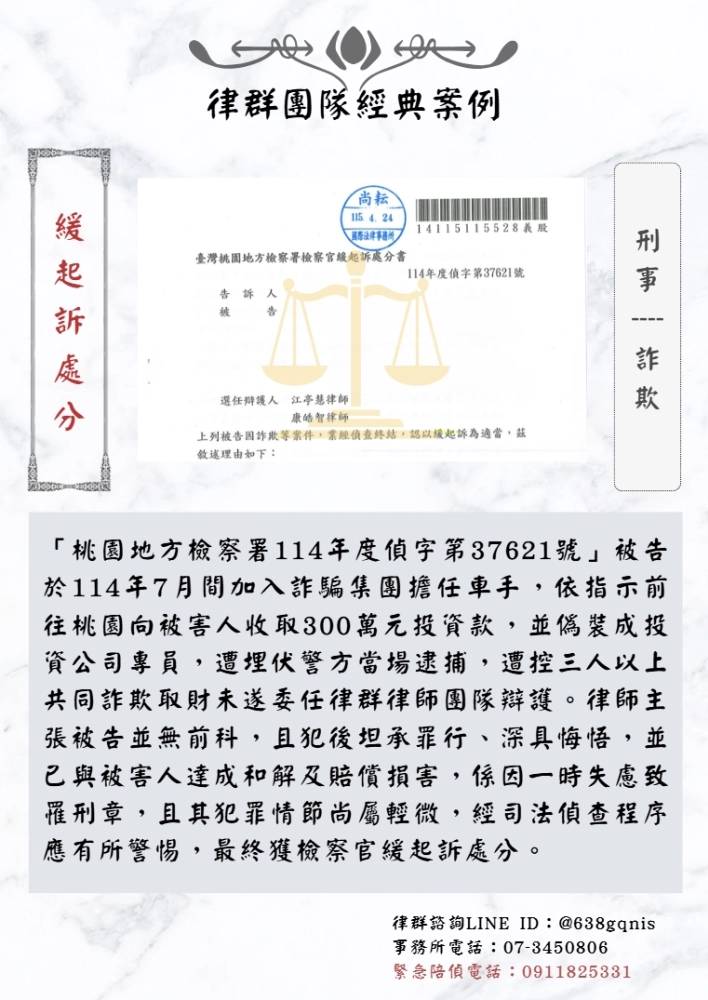 律群團隊經典案例
緩起訴處分
刑事----詐欺
尚耘
115. 4. 24
國際法律事務所
14115115528義股
臺灣桃園地方檢察署檢察官緩起訴處分書
114年度偵字第37621號
告訴人
被告
選任辯護人 江亭慧律師
康皓智律師
上列被告因詐欺等案件,業經偵查終結,認以緩起訴為適當,茲
敘述理由如下:
「桃園地方檢察署114年度偵字第37621號」被告
於114年7月間加入詐騙集團擔任車手,依指示前
往桃園向被害人收取300萬元投資款,並偽裝成投
資公司專員,遭埋伏警方當場逮捕,遭控三人以上
共同詐欺取財未遂委任律群律師團隊辯護。律師主
張被告並無前科,且犯後坦承罪行、深具悔悟,並
已與被害人達成和解及賠償損害,係因一時失慮致
罹刑章,且其犯罪情節尚屬輕微,經司法偵查程序
應有所警惕,最終獲檢察官緩起訴處分。
律群諮詢LINE ID:@638gqnis
事務所電話:07-3450806
緊急陪偵電話:0911825331